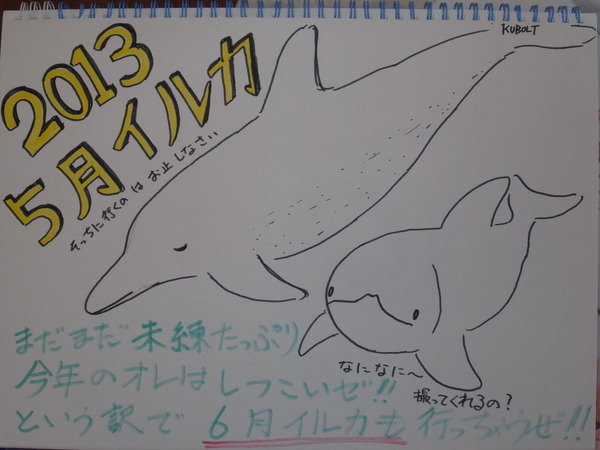 KUBOLT
2013
5月イルカ
そっちに行くのは お止しなさい
なになに〜
撮ってくれるの?
まだまだ未練たっぷり
今年のオレはしつこいゼ!!
という訳で 6月イルカも行っちゃうぜ!!